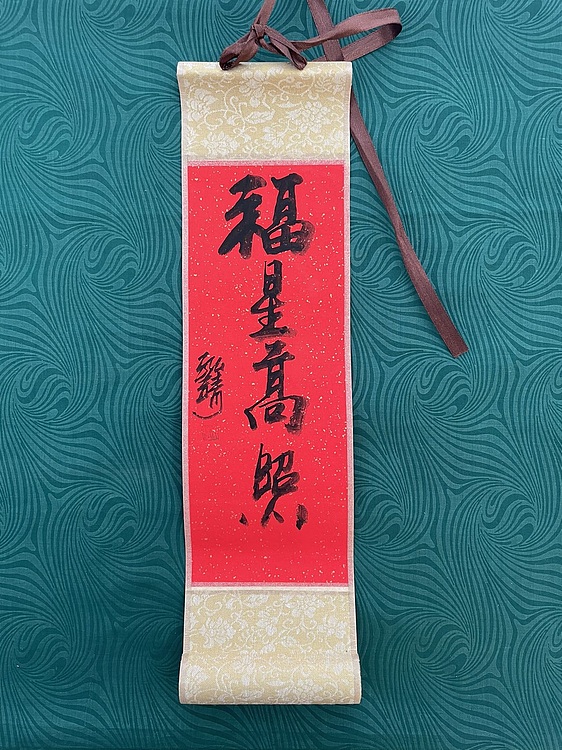 福星高照